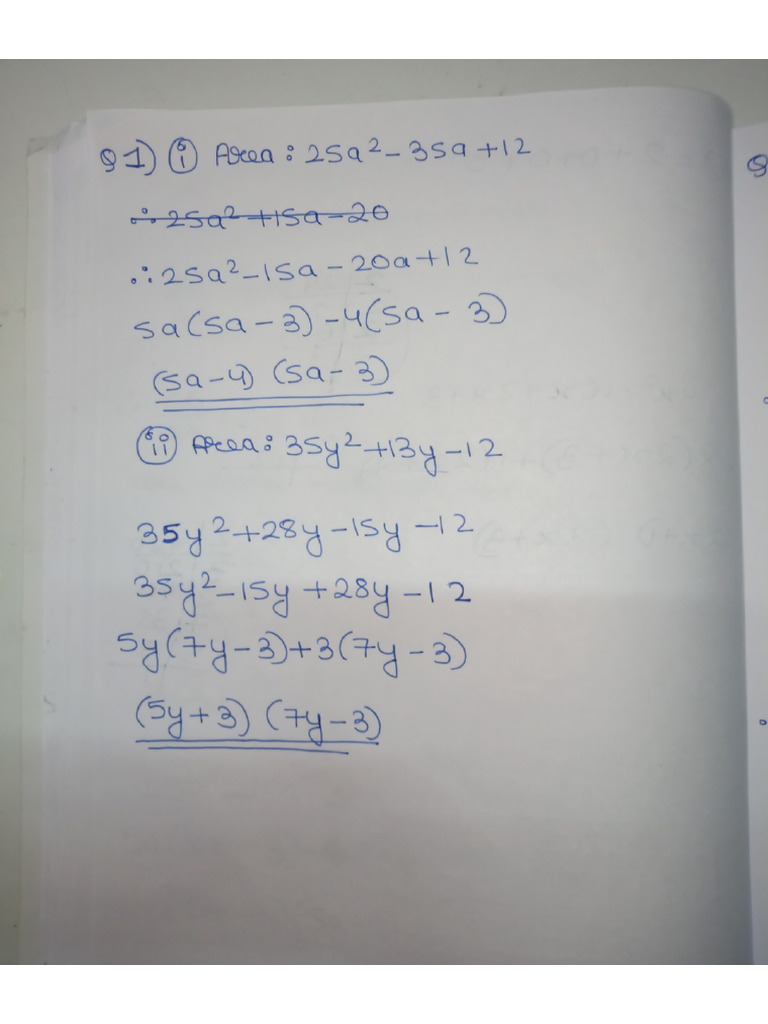 Q 1) (i) Area: 25a² - 35a + 12
∴ 25a² + 15a - 20
∴ 25a² - 15a - 20a + 12
5a(5a - 3) - 4(5a - 3)
(5a - 4) (5a - 3)
(ii) Area: 35y² + 13y - 12
35y² + 28y - 15y - 12
35y² - 15y + 28y - 12
5y(7y - 3) + 3(7y - 3)
(5y + 3) (7y - 3)
Q